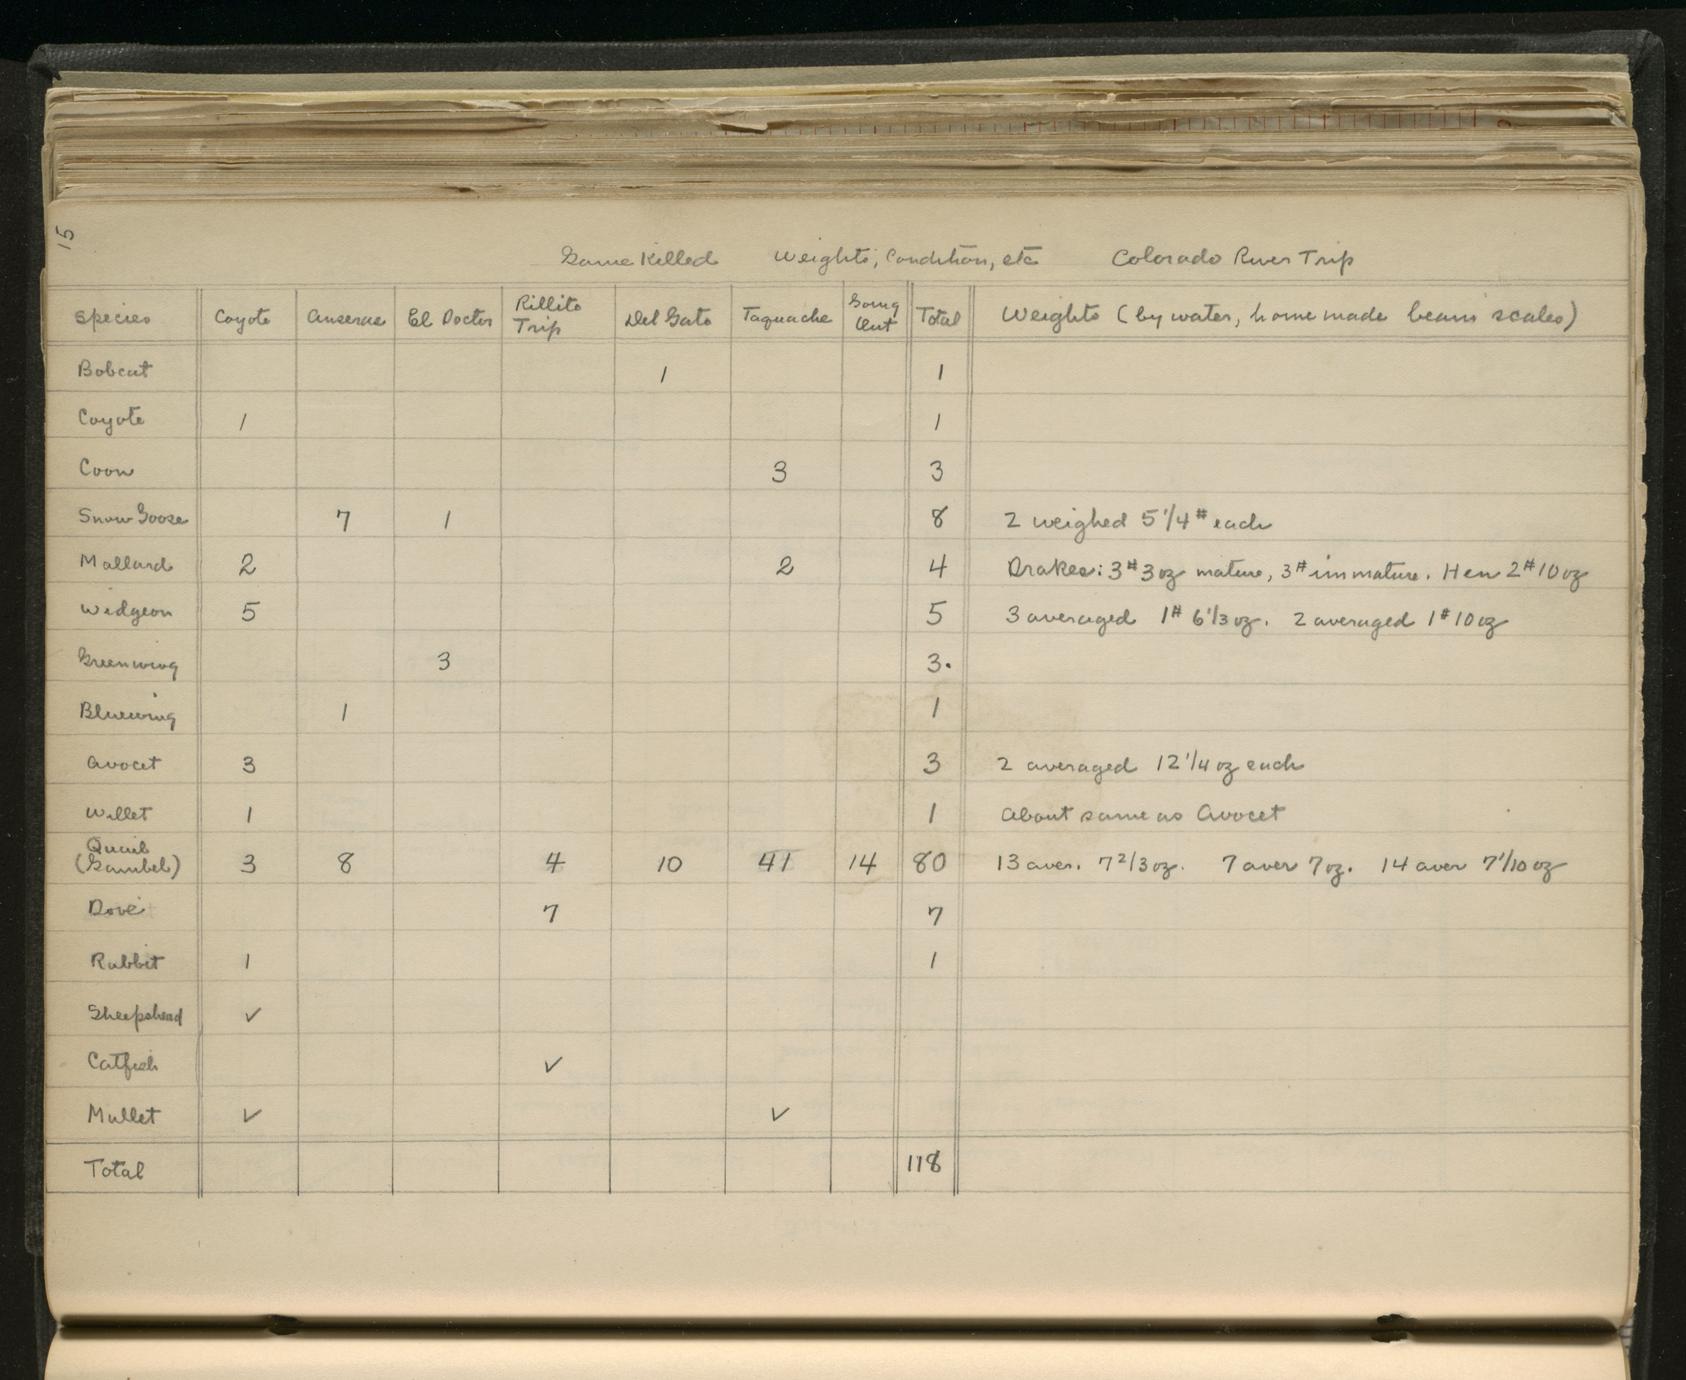 15
Game Killed Weights, Condition, etc Colorado River Trip
Species Coyote Anserae El Doctor Rillito Trip Del Gato Taquache Going Out Total Weights (by water, home made beam scales)
Bobcat 1 1
Coyote 1 1
Coon 3 3
Snow Goose 7 1 8 2 weighed 5 1/4 # each
Mallard 2 2 4 Drakes: 3# 3 oz mature, 3# immature. Hen 2# 10 oz
Widgeon 5 5 3 averaged 1# 6 1/3 oz. 2 averaged 1# 10 oz
Greenwing 3 3.
Bluewing 1 1
Avocet 3 3 2 averaged 12 1/4 oz each
Willet 1 1 About same as Avocet
Quail (Gambel) 3 8 4 10 41 14 80 13 aver. 7 2/3 oz. 7 aver 7 oz. 14 aver 7 1/10 oz
Dove 7 7
Rabbit 1 1
Sheepshead ✓
Catfish ✓
Mullet ✓ ✓
Total 118